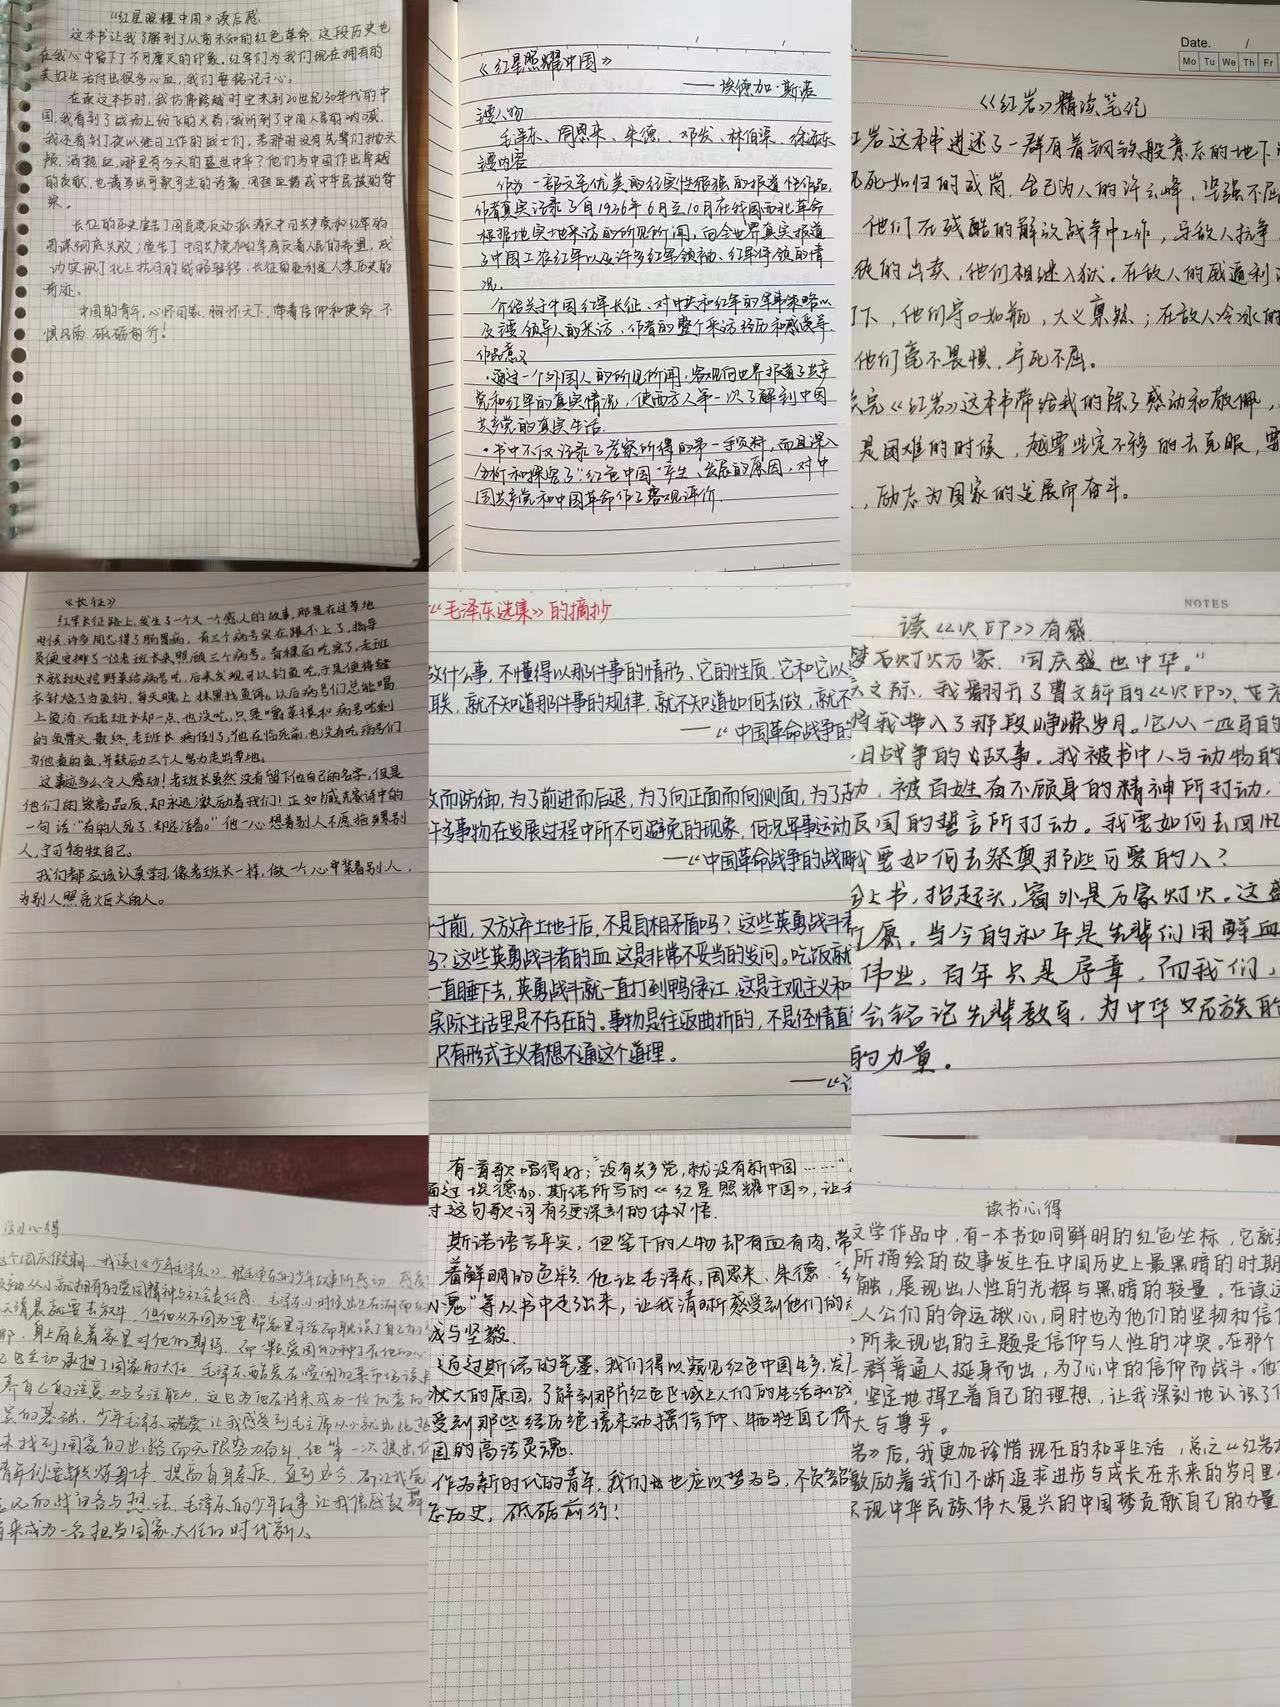 《红星照耀中国》读后感
这本书让我了解到了从前未知的红色革命,这段历史也
在我心中留下了不可磨灭的印象。红军们为我们现在拥有的
美好生活付出很多心血,我们要铭记于心。
在读这本书时,我仿佛跨越时空来到20世纪30年代的中
国,我看到了战场上纷飞的火药,我听到了中国人民的呐喊,
我还看到了夜以继日工作的战士们。若那时没有先辈们抛头
颅,洒热血,哪里有今天的盛世中华?他们为中国作出卓越
的贡献,也谱写出可歌可泣的诗篇,用热血铸成中华民族的脊
梁。
长征的历史宣告了国民党反动派消灭中国共产党和红军的
图谋彻底失败,宣告了中国共产党和红军肩负着人民的希望,成
功实现了北上抗日的战略转移,长征的胜利是人类历史的
奇迹。
中国的青年,心怀国家,胸怀天下,带着信仰和使命,不
惧风雨,砥砺前行!
《红星照耀中国》
——埃德加·斯诺
主要人物
毛泽东、周恩来、朱德、邓发、林伯渠、徐海东
主要内容
作为一部文笔优美的纪实性很强的报道性作品,
作者真实记录了自1936年6月至10月在我国西北革命
根据地实地采访的所见所闻,向全世界真实报道
了中国工农红军以及许多红军领袖、红军将领的情
况。
介绍关于中国红军长征、对中共和红军的军事策略以
及主要领导人的采访,作者的整个采访经历和感受等
作品意义
·通过一个外国人的所见所闻,客观向世界报道了共产
党和红军的真实情况,使西方人第一次了解到中国
共产党的真实生活.
·书中不仅记录了考察所得的第一手资料,而且深入
分析和探究了“红色中国”产生、发展的原因,对中
国共产党和中国革命作了客观评价.
Date. /
Mo Tu We Th Fr
《红岩》精读笔记
红岩这本书讲述了一群有着钢铁般意志的地下
视死如归的成岗,舍己为人的许云峰,坚强不屈
他们在残酷的解放战争中工作,与敌人抗争
徒的出卖,他们相继入狱。在敌人的威逼利
下,他们守口如瓶,大义凛然;在敌人冷冰的
他们毫不畏惧,宁死不屈。
读完《红岩》这本书带给我的除了感动和敬佩,
是困难的时候,越要坚定不移的去克服,要
,励志为国家的发展而奋斗。
《长征》
红军长征路上,发生了一个又一个感人的故事,那是在过草地
时候,许多同志得了肠胃病,有三个病号实在跟不上了,指导
员便安排了一位老班长来照顾三个病号。青稞面吃完了,老班
长就到处挖野菜给病号吃,后来发现可以钓鱼吃,于是便将缝
衣针烧了当鱼钩,每天晚上摸黑找鱼饵,以后病号们总能喝
上鱼汤,而老班长却一点也没吃,只是嚼草根和病号吃剩
的鱼骨头,最终,老班长病倒了,他在临死前,也没有吃病号们
为他煮的鱼,并鼓励三个人努力走出草地。
这事迹多么令人感动!老班长虽然没有留下他自己的名字,但是
他们的崇高品质,却永远激励着我们!正如臧克家诗中的
一句话:“有的人死了,却还活着。”他一心想着别人不愿拖累别
人,宁可牺牲自己。
我们都应该认真学习,像老班长一样,做一个心中装着别人,
为别人照亮炬火的人。
《毛泽东选集》的摘抄
做什么事,不懂得以那件事的情形,它的性质,它和它以
联,就不知道那件事的规律,就不知道如何去做,就不
——《中国革命战争的
攻而防御,为了前进而后退,为了向正面而向侧面,为了走
许多事物在发展过程中所不可避免的现象,何况军事运动
——《中国革命战争的战略
于前,又放弃土地于后,不是自相矛盾吗?这些英勇战斗者
吗?这些英勇战斗者的血,这是非常不妥当的发问。吃饭就
一直睡下去,英勇战斗就一直打到鸭绿江,这是主观主义和
实际生活里是不存在的。事物是往返曲折的,不是径情直
只有形式主义者想不通这个道理。
——《论
NOTES
读《火印》有感
梦百灯火万家,国庆盛世中华。”
之际,我翻开了曹文轩的《火印》,
将我带入了那段峥嵘岁月。它从一匹马的
日战争的故事。我被书中人与动物的
动,被百姓奋不顾身的精神所打动,
反国的誓言所打动。我要如何去回忆
我要如何去祭奠那些可爱的人?
合上书,抬起头,窗外是万家灯火。这盛
愿。当今的和平是先辈们用鲜血
伟业,百年只是序章,而我们,
会铭记先辈教导,为中华民族的
的力量。
读书心得
这个国庆假期,我读了《少年毛泽东》,被毛泽东的少年故事所感动,感
动从小就拥有的爱国精神与社会责任感。毛泽东小时候出生在湖南
天清晨就要去放牛,但他从不因为要帮家里干活而耽误了自己的
那,身上肩负着家里对他的期待,而一颗爱国的种子在他的心
己也主动承担了国家的大任。毛泽东酷爱在喧闹的菜市场读
养自己的注意力与专注能力,这也为他在将来成为一位优秀的
定的基础。少年毛泽东 让我感受到毛主席从小就
来找到国家的出路而无限努力奋斗,他第一次提出
青年们要锻炼身体,提高自身素质,直到迄今,都让我
毛泽东的少年故事让我倍感鼓舞
将来成为一名担当国家大任的时代新人
有一首歌唱得好:“没有共产党,就没有新中国……”
通过埃德加·斯诺所写的《红星照耀中国》,让我
对这句歌词有了更深刻的体会与感悟.
斯诺语言平实,但笔下的人物却有血有肉,带
着鲜明的色彩.他让毛泽东,周恩来、朱德、“红
小鬼”等从书中走了出来,让我清晰感受到他们的
诚与坚毅.
通过斯诺的笔墨,我们得以窥见红色中国生乡,发
状大的原因,了解到那片红色区域上人们的生活和战
受到那些经历绝境未动摇信仰、牺牲自己保
国的高洁灵魂.
作为新时代的青年,我们也应以梦为马,不负韶
忘历史,砥砺前行!
读书心得
文学作品中,有一本书如同鲜明的红色坐标,它就是
所描绘的故事发生在中国历史上最黑暗的时期
触,展现出人性的光辉与黑暗的较量。在读这
人公们的命运揪心,同时也为他们的坚韧和信
所表现出的主题是信仰与人性的冲突。在那个
群普通人挺身而出,为了心中的信仰而战斗。他
坚定地捍卫着自己的理想,让我深刻地认识了
大与尊严。
岩》后,我更加珍惜现在的和平生活,总之《红岩
激励着我们不断追求进步与成长在未来的岁月里
实现中华民族伟大复兴的中国梦贡献自己的力量